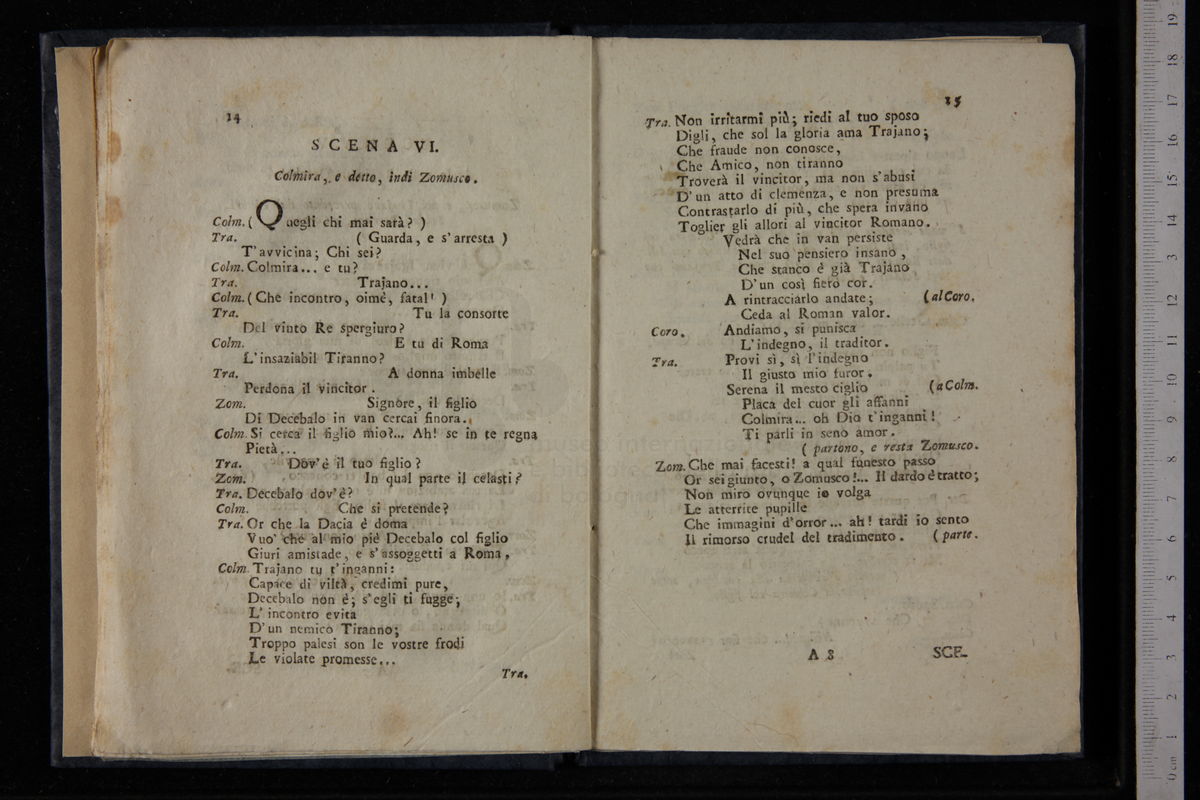 14
SCENA VI.
Colmira, e detto, indi Zomusco.
Colm. ( Quegli chi mai sarà? )
Tra. ( Guarda, e s'arresta )
T'avvicina; Chi sei?
Colm. Colmira... e tu?
Tra. Trajano...
Colm. ( Che incontro, oimè, fatal! )
Tra. Tu la consorte
Del vinto Re spergiuro?
Colm. E tu di Roma
L'insaziabil Tiranno?
Tra. A donna imbelle
Perdona il vincitor.
Zom. Signore, il figlio
Di Decebalo in van cercai finora.
Colm. Si cerca il figlio mio?... Ah! se in te regna
Pietà...
Tra. Dov'è il tuo figlio?
Zom. In qual parte il celasti?
Tra. Decebalo dov'è?
Colm. Che si pretende?
Tra. Or che la Dacia è doma
Vuo' che al mio piè Decebalo col figlio
Giuri amistade, e s'assoggetti a Roma.
Colm. Trajano tu t'inganni:
Capace di viltà, credimi pure,
Decebalo non è; s'egli ti fugge;
L'incontro evita
D'un nemico Tiranno;
Troppo palesi son le vostre frodi
Le violate promesse...
Tra.
15
Tra. Non irritarmi più; riedi al tuo sposo
Digli, che sol la gloria ama Trajano;
Che fraude non conosce,
Che Amico, non tiranno
Troverà il vincitor, ma non s'abusi
D'un atto di clemenza, e non presuma
Contrastarlo di più, che spera invano
Toglier gli allori al vincitor Romano.
Vedrà che in van persiste
Nel suo pensiero insano,
Che stanco è già Trajano
D'un così fiero cor.
A rintracciarlo andate; (al Coro.
Ceda al Roman valor.
Coro. Andiamo, si punisca
L'indegno, il traditor.
Tra. Provi sì, sì l'indegno
Il giusto mio furor.
Serena il mesto ciglio (a Colm.
Placa del cuor gli affanni
Colmira... oh Dio t'inganni!
Ti parli in seno amor.
( partono, e resta Zomusco.
Zom. Che mai facesti! a qual funesto passo
Or sei giunto, o Zomusco!... Il dardo è tratto;
Non miro ovunque io volga
Le atterrite pupille
Che immagini d'orror... ah! tardi io sento
Il rimorso crudel del tradimento. (parte.
A 8 SCE-
0 cm 1 2 3 4 5 6 7 8 9 10 11 12 13 14 15 16 17 18 19